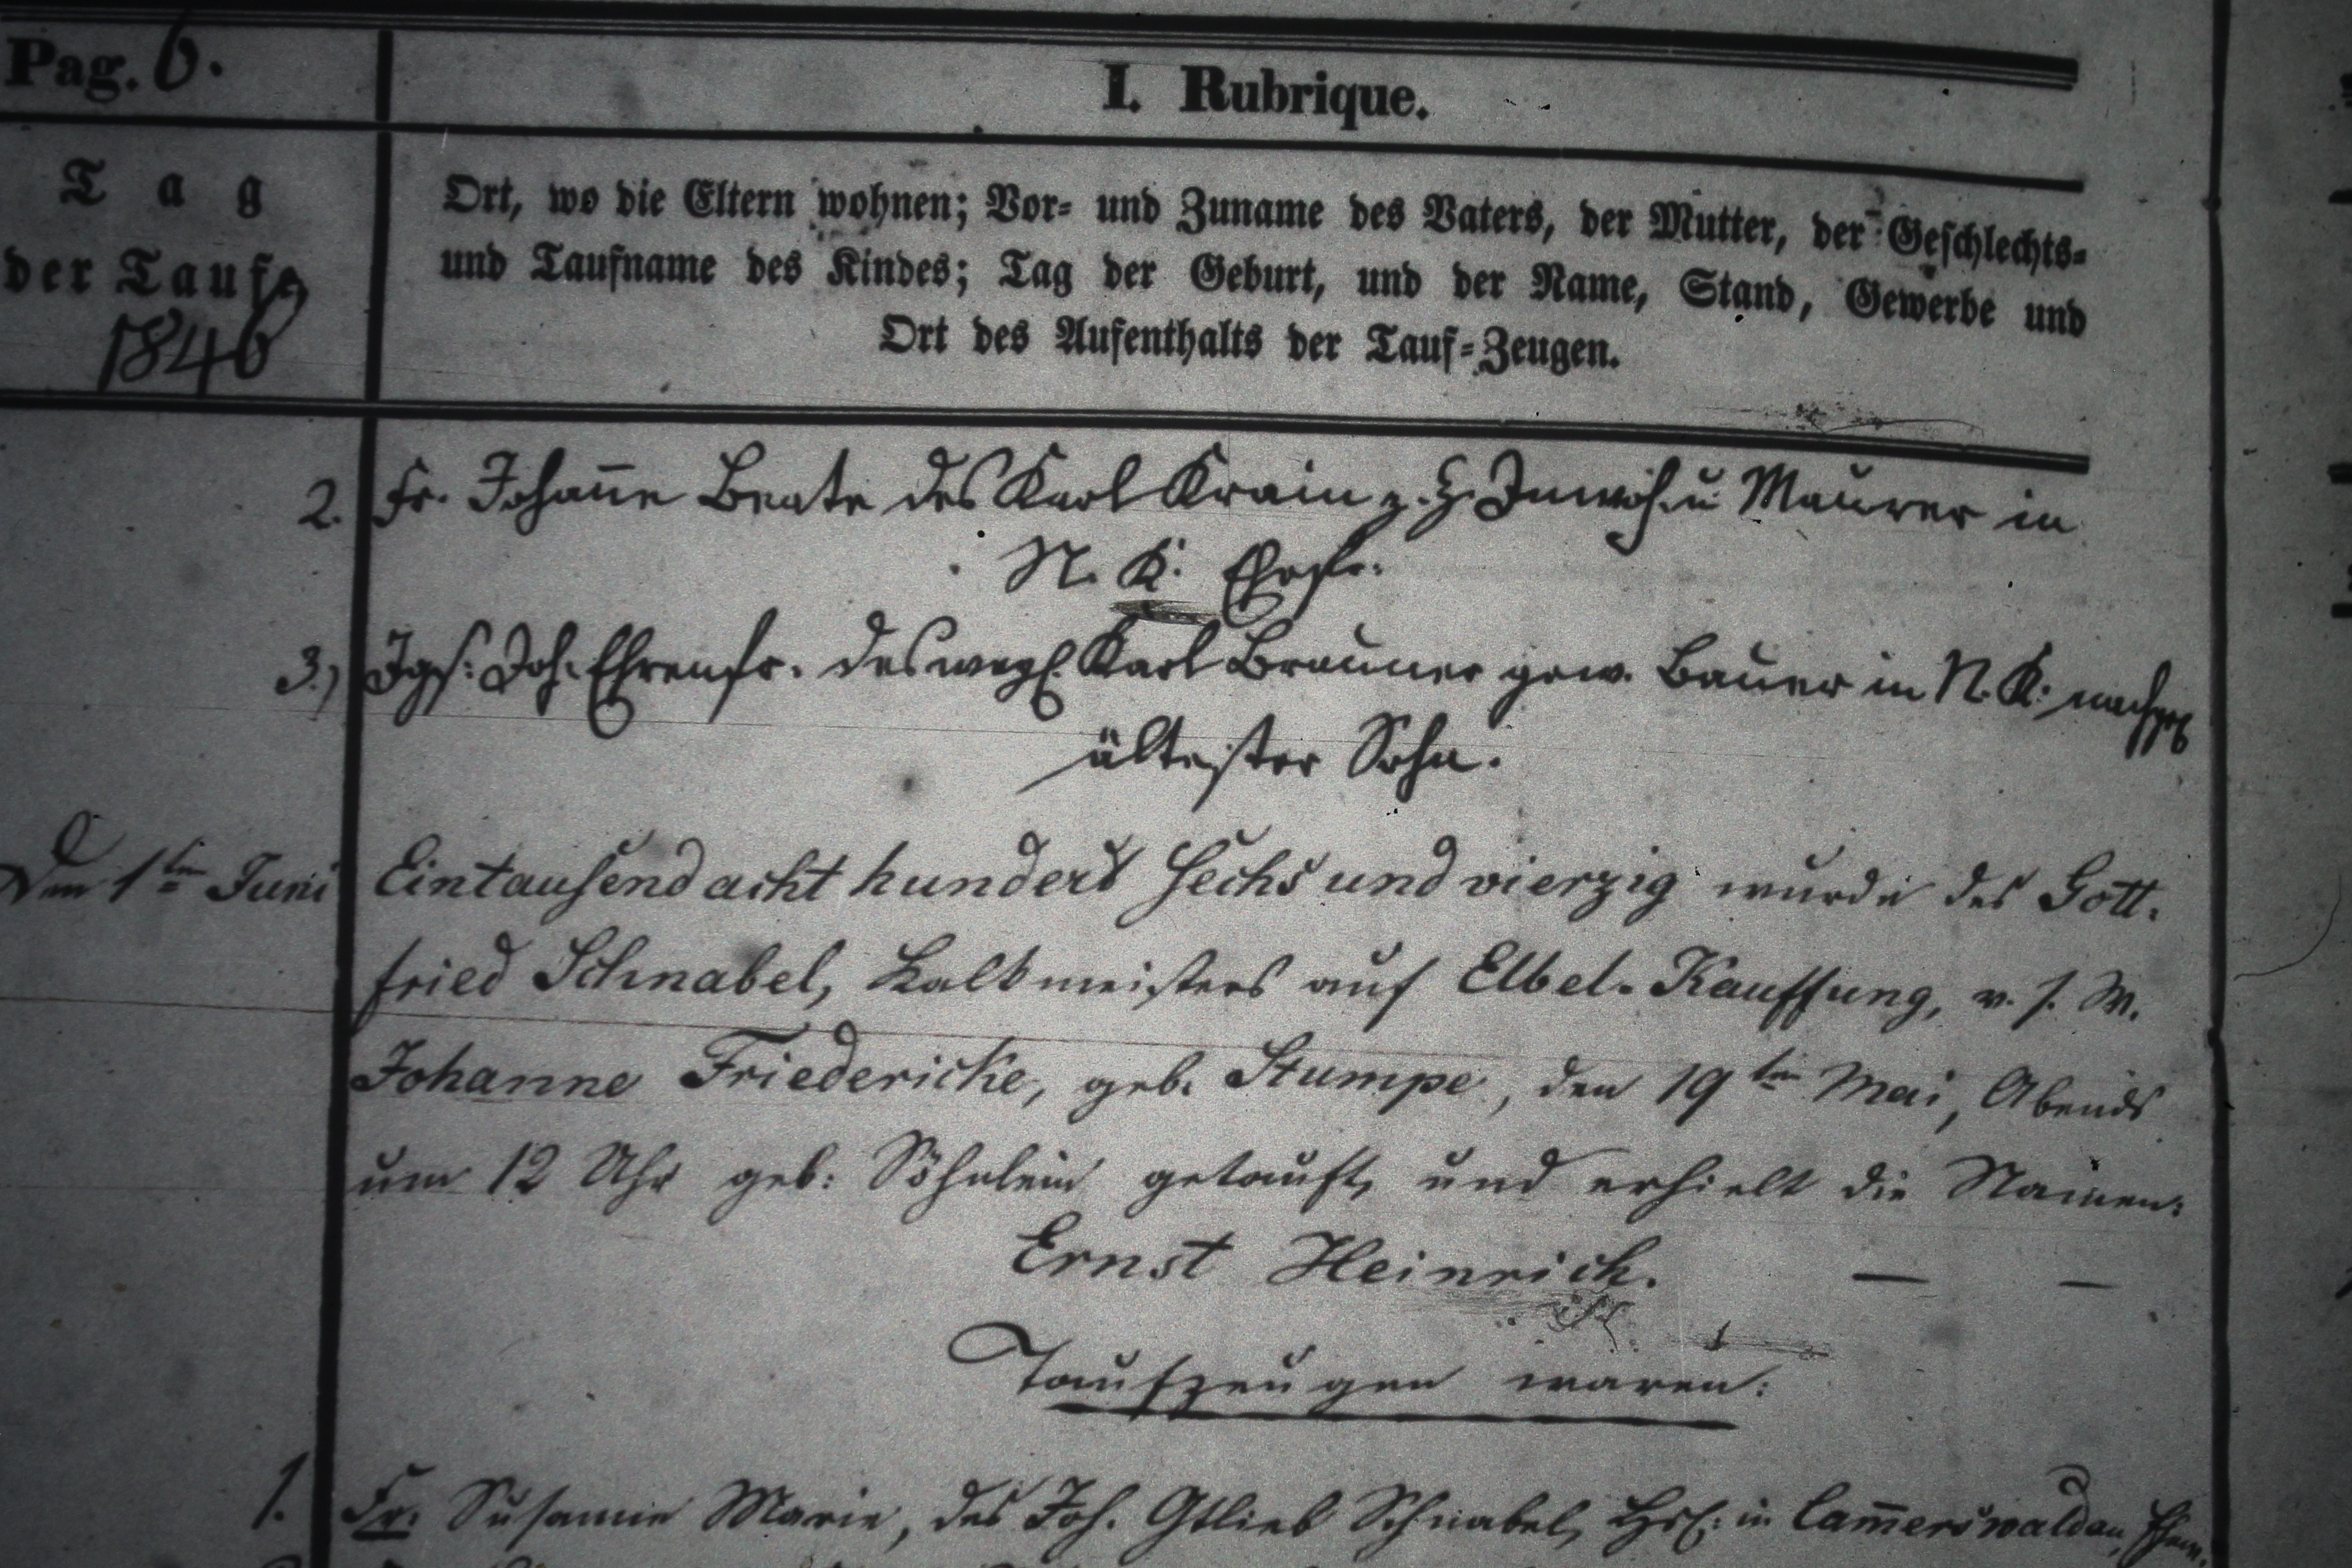 Pag. 6.
I. Rubrique.
Tag
der Taufe
1846
Ort, wo die Eltern wohnen; Vor- und Zuname des Vaters, der Mutter, der Geschlechts-
und Taufname des Kindes; Tag der Geburt, und der Name, Stand, Gewerbe und
Ort des Aufenthalts der Tauf-Zeugen.
2. Fr. Johan̄e Beate des Karl Krain z. Z. Inwoh. u Maurer in
N. K. Ehefr.
3.) Jgs. Joh. Ehrenfr. des wegl. Karl Brauner gew. Bauer in N. K.
ältester Sohn.
Den 1ten Juni Eintausend acht hundert sechs und vierzig wurde des Gott-
fried Schnabel, Kalkmeisters auf Elbel-Kauffung, v. s. W.
Johanne Friedericke, geb. Stumpe, den 19ten Mai, Abends
um 12 Uhr geb: Söhnlein getauft, und erhielt die Namen:
Ernst Heinrich. — —
Taufzeugen waren:
1. Fr. Susanne Marie, des Joh. Gtlieb Schnabel, in Cam̄erswaldau,